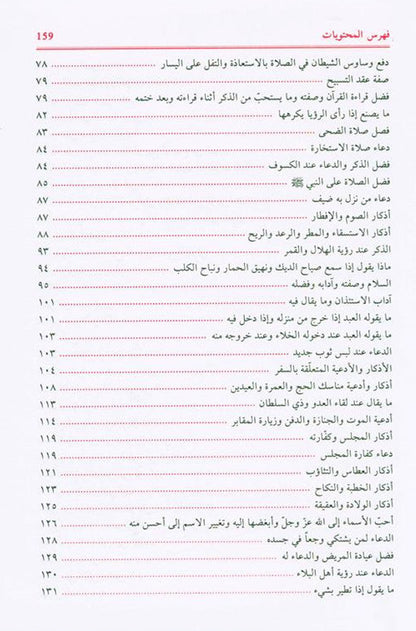 فهرس المحتويات 159
دفع وساوس الشيطان في الصلاة بالاستعاذة والتفل على اليسار ٧٨
صفة عقد التسبيح ٧٩
فضل قراءة القرآن وصفته وما يستحبّ من الذكر أثناء قراءته وبعد ختمه ٧٩
ما يصنع إذا رأى الرؤيا يكرهها ٨٢
فضل صلاة الضحى ٨٣
دعاء صلاة الاستخارة ٨٤
فضل الذكر والدعاء عند الكسوف ٨٤
فضل الصلاة على النبي ﷺ ٨٥
دعاء من نزل به ضيف ٨٧
أذكار الصوم والإفطار ٨٧
أذكار الاستسقاء والمطر والرعد والريح ٨٨
الذكر عند رؤية الهلال والقمر ٩٣
ماذا يقول إذا سمع صياح الديك ونهيق الحمار ونباح الكلب ٩٤
السلام وصفته وآدابه وفضله ٩٥
آداب الاستئذان وما يقال فيه ١٠١
ما يقوله العبد إذا خرج من منزله وإذا دخل فيه ١٠١
ما يقوله العبد عند دخوله الخلاء وعند خروجه منه ١٠٣
الدعاء عند لبس ثوب جديد ١٠٣
الأذكار والأدعية المتعلّقة بالسفر ١٠٤
أذكار وأدعية مناسك الحج والعمرة والعيدين ١٠٨
ما يقال عند لقاء العدو وذي السلطان ١١٣
أدعية الموت والجنازة والدفن وزيارة المقابر ١١٤
أذكار المجلس وكفّارته ١١٩
دعاء كفارة المجلس ١١٩
أذكار العطاس والتثاؤب ١٢١
أذكار الخطبة والنكاح ١٢٣
أذكار الولادة والعقيقة ١٢٥
أحبّ الأسماء إلى الله عزّ وجلّ وأبغضها إليه وتغيير الاسم إلى أحسن منه ١٢٦
الدعاء لمن يشتكي وجعاً في جسده ١٢٨
فضل عيادة المريض والدعاء له ١٢٩
الدعاء عند رؤية أهل البلاء ١٣٠
ما يقول إذا تطير بشيء ١٣١